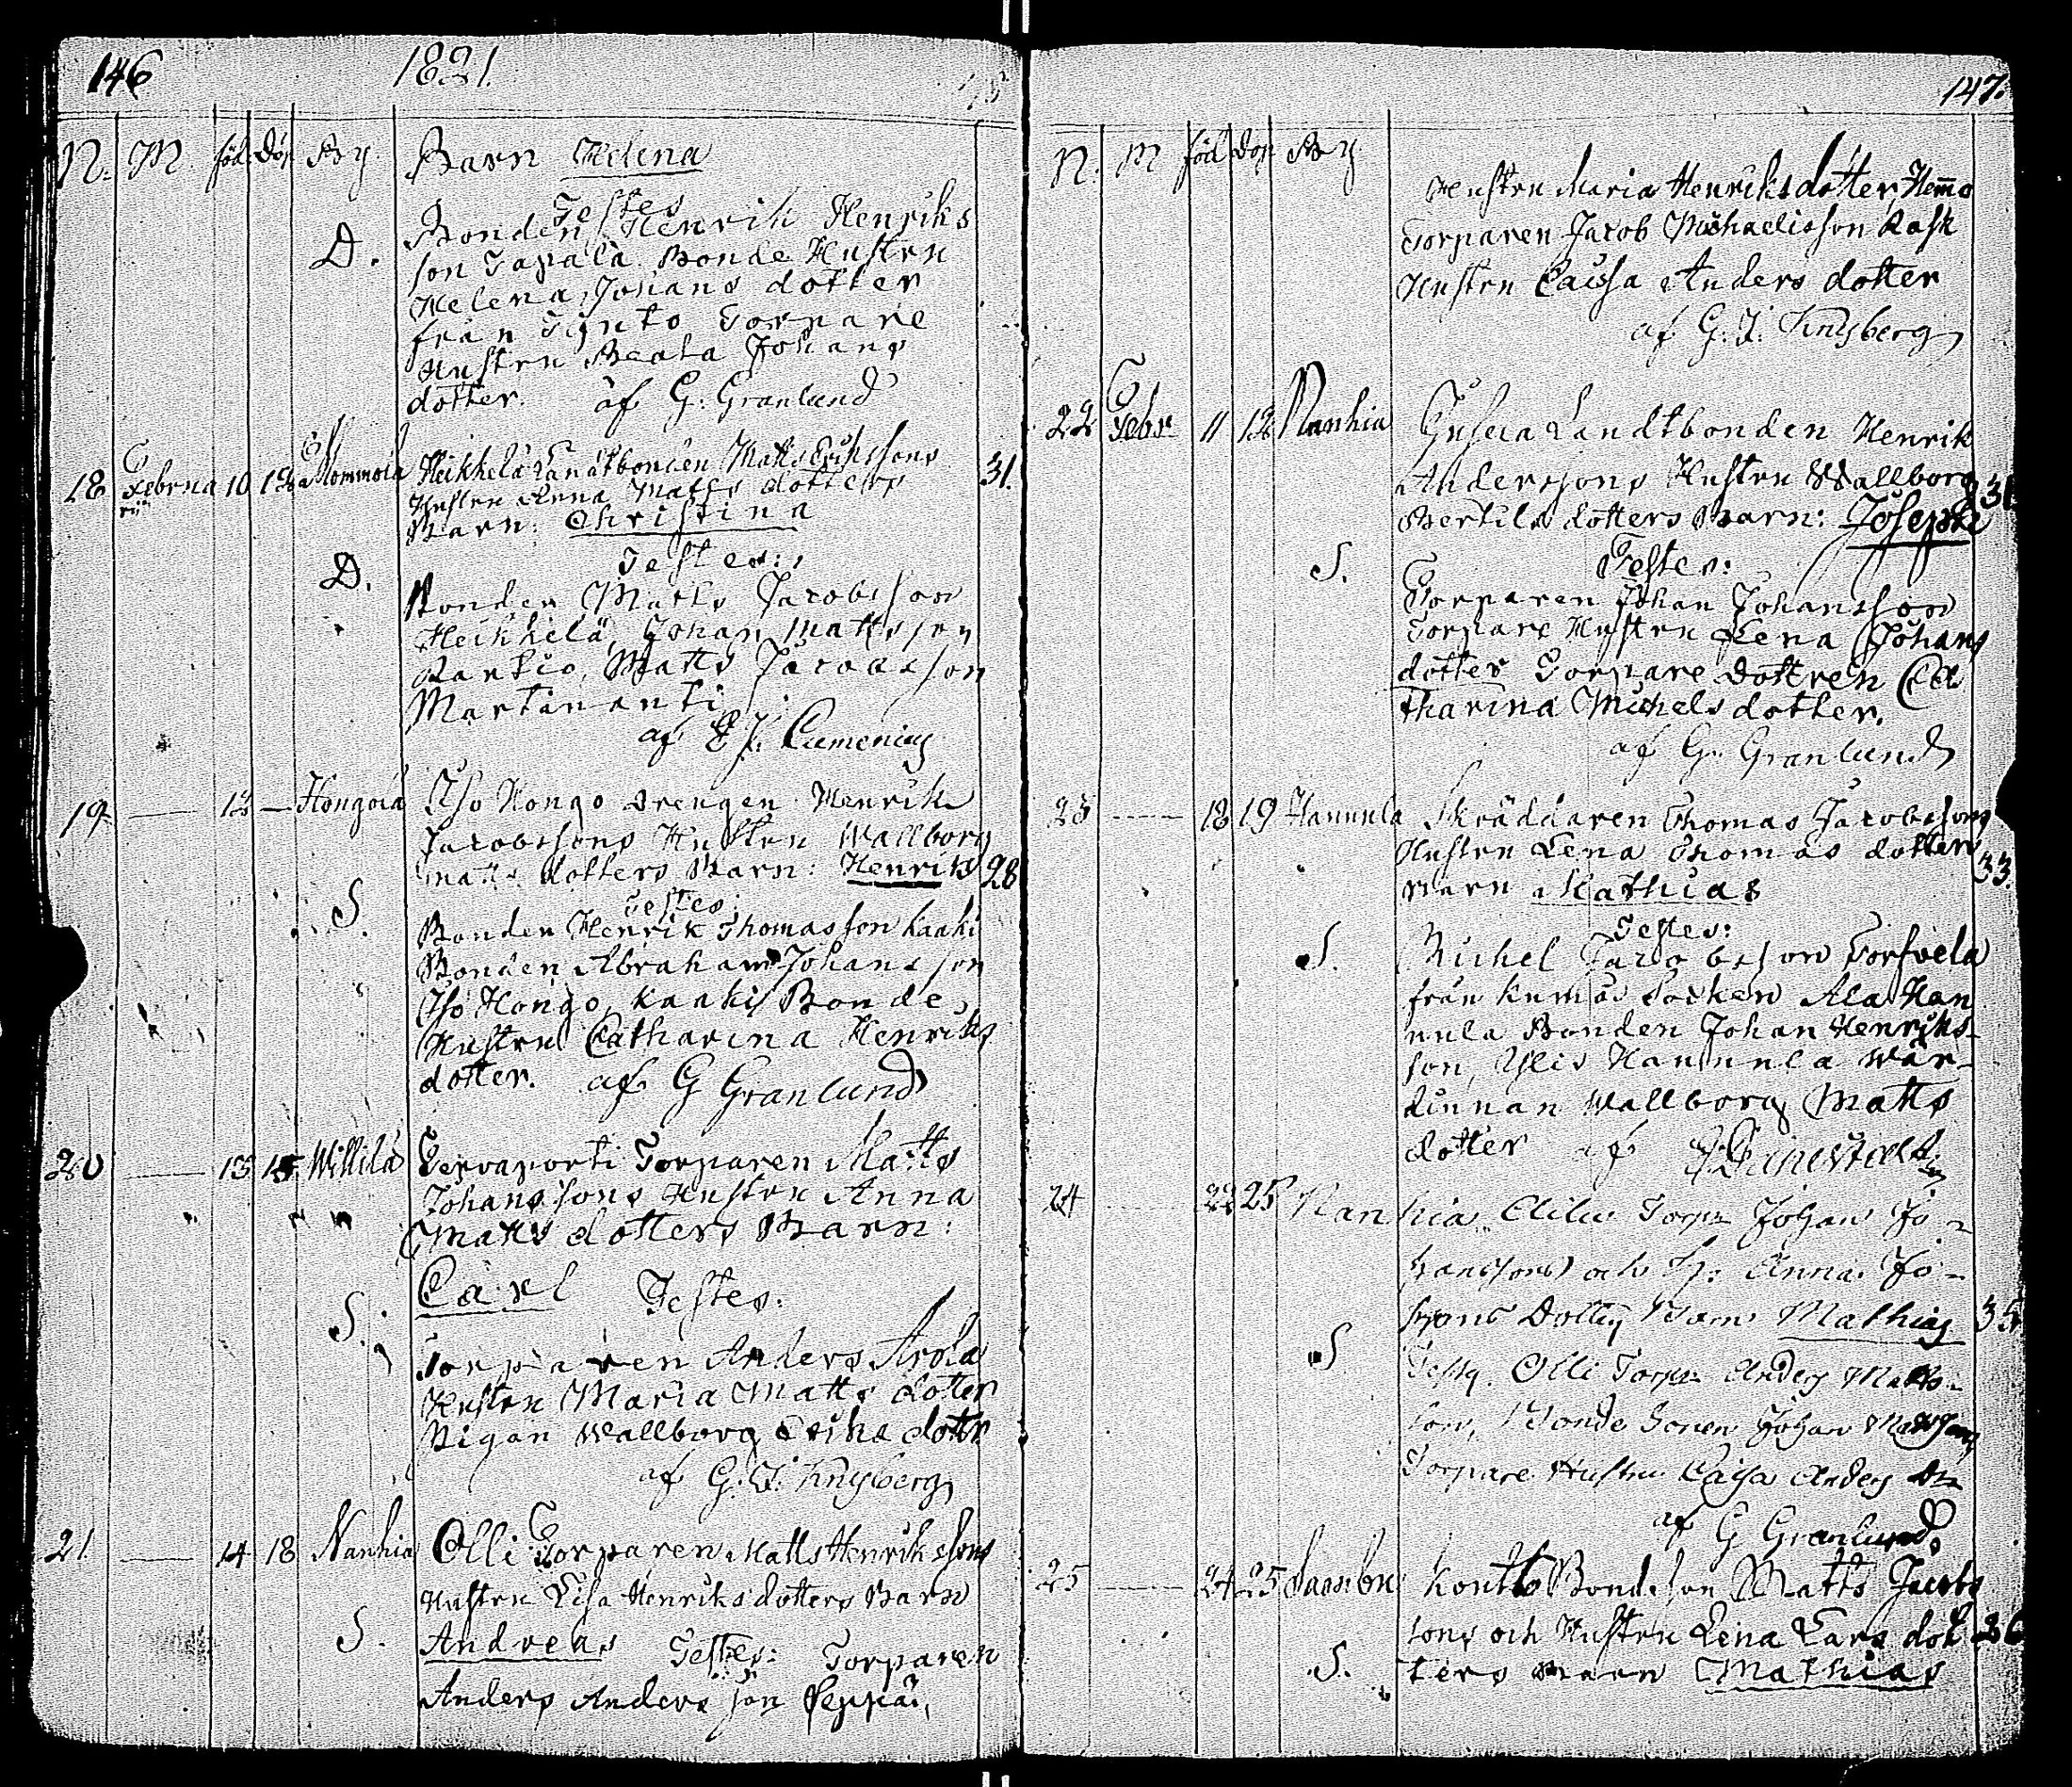 146 1821.
N. M. föd. Döp. By Barn Helena
Testes
D. Bonden Henrik Henriks
son Tapala. Bonde Hustru
Helena Johans dotter
från Torpare
Hustru Beata Johans
dotter. af G. Granlund
18 Februa 10 12 Mommola Heikkelä Landtbonden Matts Erikssons 31.
rii Hustru Anna Matts dotters
Barn: Christina
Testes:
D. Bonden Matts Jacobsson
Heikkelä, Johan Matts son
Matts Jacobsson
Martinanti
af Cumenius
19 — 12 — Hongola Iso Hongo Drengen Henrik
Jacobssons Hustru Wallborg
Matts dotters Barn: Henrik 28
Testes:
S. Bonden Henrik Thomas son Kaaki
Bonden Abraham Johans son
Iso Hongo, Kaaki Bonde
Hustru Catharina Henriks
dotter. af G Granlund
20 — 13 15 Willila Torparen Matts
Johanssons Hustru Anna
Matts dotters Barn:
Carl Testes:
S. Torparen Anders Arola
Hustru Maria Matts dotter
Pigan Wallborg Eriks dottr
af G. I. Knysberg
21. — 14 18 Nanhia Olli Torparen Matts Henrikssons
Hustru Lisa Henriks dotters Barn
S. Andreas Testes: Torparen
Anders Anders son Seppä,
147.
N. M föd Dop By
Hustru Maria Henriks dotter, Hemmo
Torparen Jacob Michaelisson Rask
Hustru Caisa Anders dotter
af G. I. Knysberg
22 Febr 11 12 Nanhia Landtbonden Henrik
Anderssons Hustru Wallborg 31
Bertils dotters Barn: Joseph
S. Testes:
Torparen Johan Johansson
Torpare Hustru Lena Johans
dotter Torpare Dottren Ca
tharina Michels dotter.
af G. Granlund
23 — 18 19 Hannula Skräddaren Thomas Jacobssons
Hustru Lena Thomas dotters 33.
Barn Mathias
Testes:
S. Michel Jacobsson Torfvela
från Kumo Socken Ala Han
nula Bonden Johan Henriks-
son, Ylis Hannula Wär-
dinnan Wallborg Matts
dotter af
24 22 25 Nanhia Torp: Johan Jo-
hanssons och H: Anna Jo-
hans Dotters Barn Mathias 35
S Testes. Olli Torp: Anders Matts-
son, Bonde Sonen Johan Mattsson
Torpare Hustru Caisa Anders Dr
af G Granlund
25 — 24 25 Sambu Kontto Bondeson Matts Jacobs
sons och Hustru Lena Lars dot 26
S. ters Barn Mathias